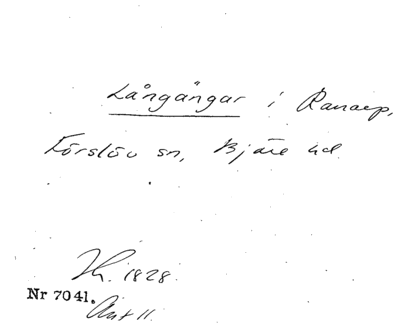 Långängar i Ranarp,
Förslöv sn, Bjäre hd
1828.
Nr 7041.
Akt 11.